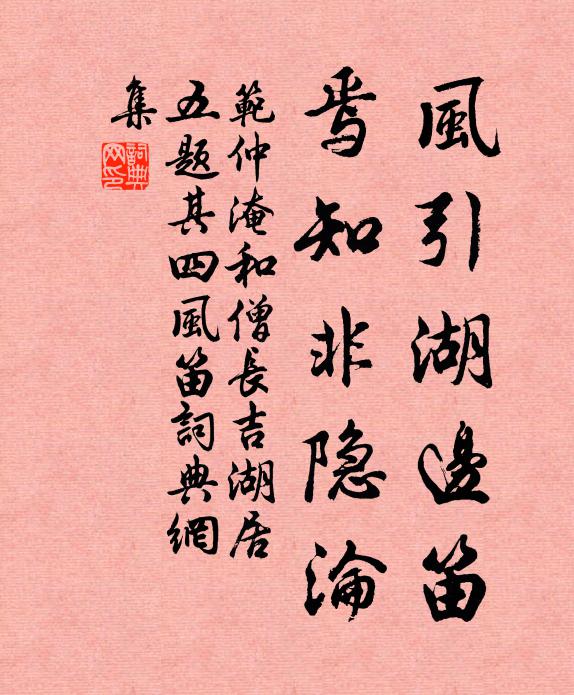 風引湖邊笛
焉知非隐淪
範仲淹和僧長吉湖居
五题其四風笛詞典網
集
詞典網印